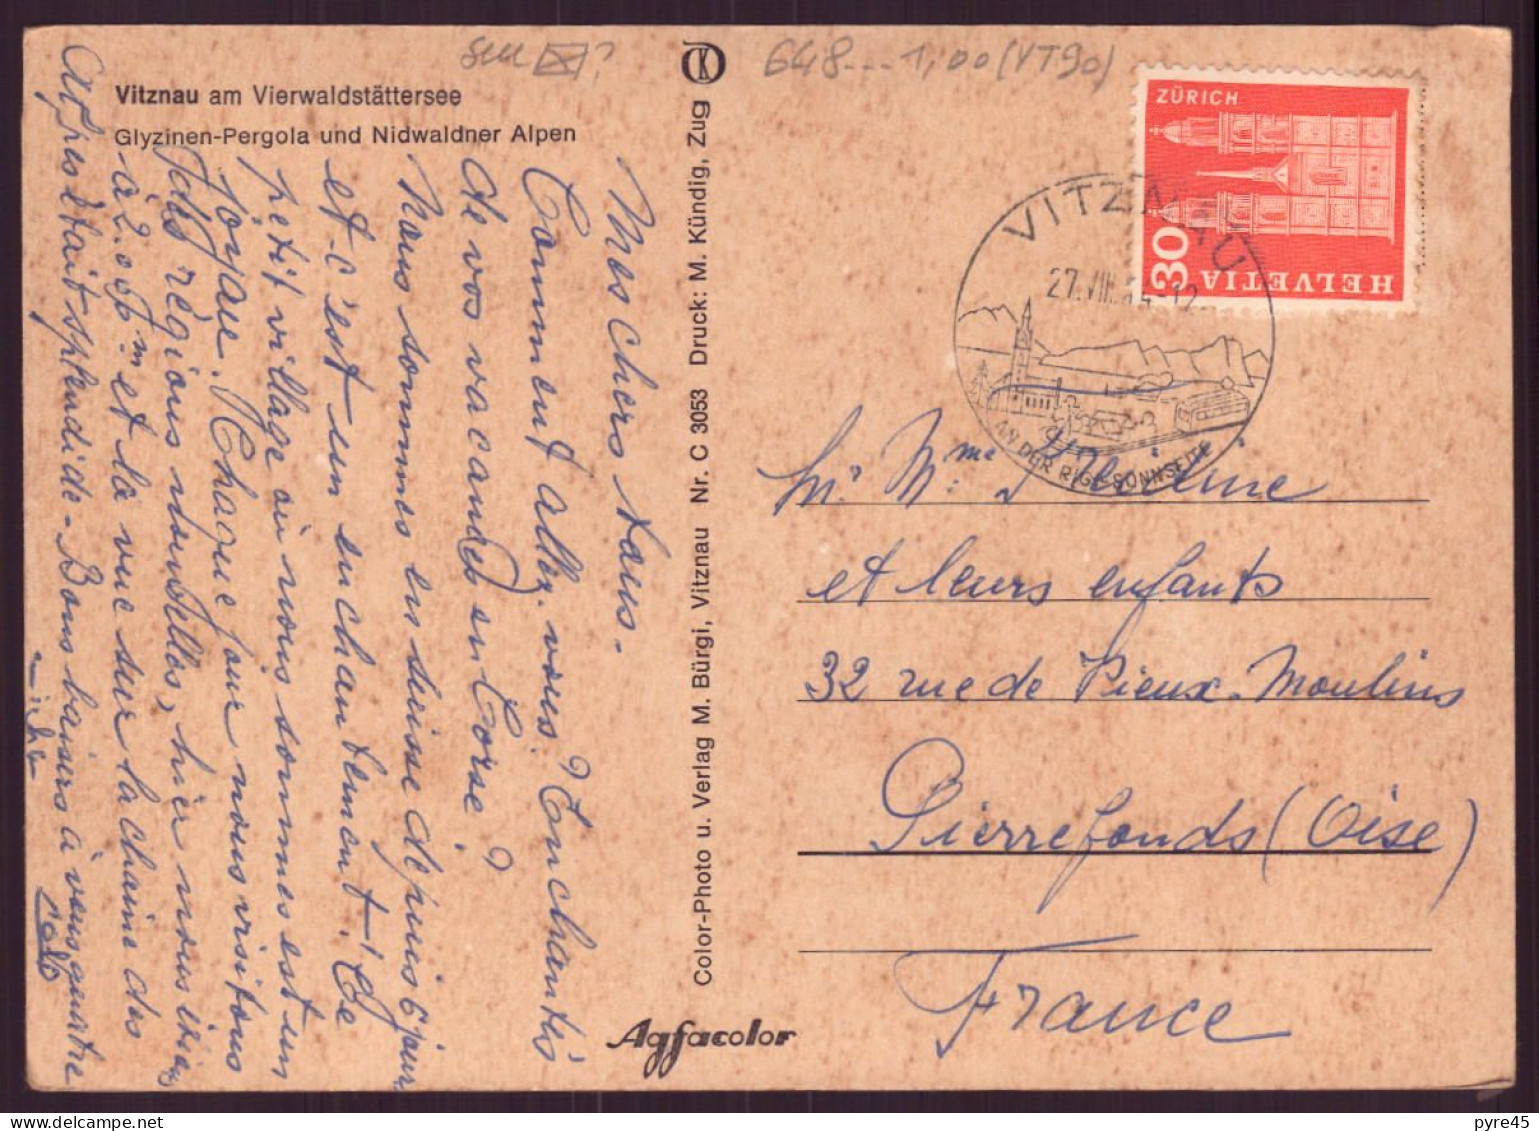 seu ?
648... 1,00 (VT90)
Vitznau am Vierwaldstättersee
Glyzinen-Pergola und Nidwaldner Alpen
Mes chers tous.
Comment allez-vous? Enchantés
de vos vacances en Corse?
Nous sommes en Suisse depuis 6 jours
et c'est un enchantement! Ce
petit village où nous sommes est un
joyau. Chaque jour nous visitons
des régions nouvelles, hier nous étions
à 2.00 m et la vue sur la chaîne des
Alpes était splendide. Bons baisers à vous quatre
Color-Photo u. Verlag M. Bürgi, Vitznau Nr. C 3053 Druck: M. Kündig, Zug
Agfacolor
ZÜRICH
30
HELVETIA
VITZNAU
27.VIII. -12
AN DER RIGI-SONNSEITE
Mr. Mme
et leurs enfants
32 rue de Pieux-Moulins
Pierrefonds (Oise)
France